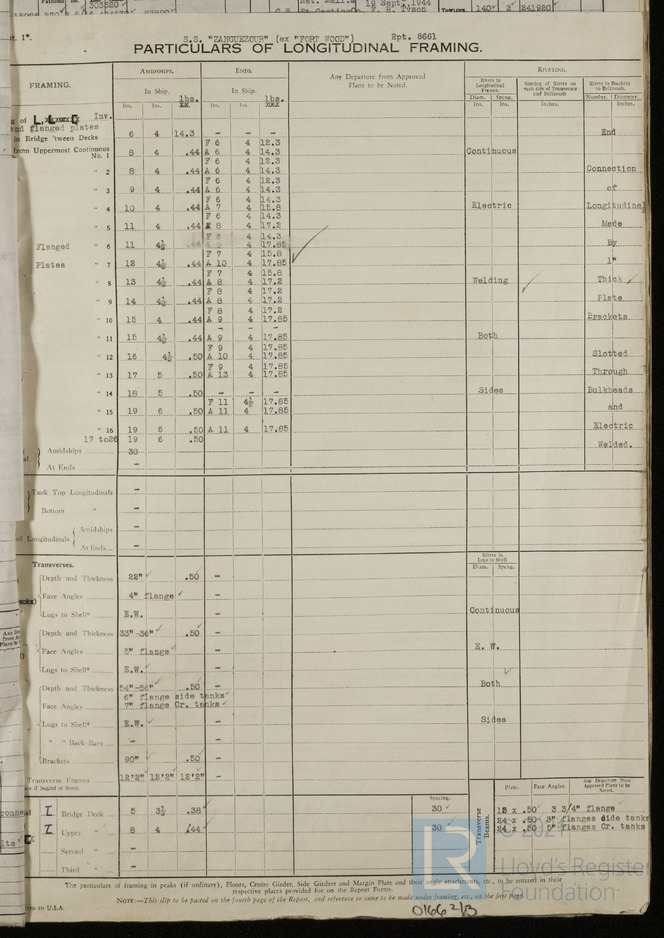 303320
19 Sept. 1944
F. H. Tyson
140' 2 241920
S.S. "ZANGUEZOUR" (ex "FORT WOOD") Rpt. 8661
PARTICULARS OF LONGITUDINAL FRAMING.
FRAMING.
AMIDSHIPS.
ENDS.
Any Departure from Approved Plans to be Noted.
RIVETING.
In Ship. lbs.
In Ship. lbs.
Rivets in Longitudinal Frames.
Spacing of Rivets on each side of Transverses and Bulkheads
Rivets in Brackets to Bulkheads.
Ins. Ins.
Ins. Ins.
Diam. Spcng.
Ins. Ins.
Inches.
Number. Diameter.
Inches.
Inv.
and flanged plates
in Bridge 'tween Decks 6 4 14.3 - - - End
from Uppermost Continuous
No. 1 8 4 .44 F 6 4 12.3
A 6 4 14.3 Continuous
" 2 8 4 .44 F 6 4 12.3
A 6 4 14.3 Connection
" 3 9 4 .44 F 6 4 12.3
A 6 4 14.3 of
" 4 10 4 .44 F 6 4 14.3
A 7 4 15.8 Electric Longitudinal
" 5 11 4 .44 F 6 4 14.3
A 8 4 17.2 Made
Flanged " 6 11 4½ .44 F 6 4 14.3
4 17.85 By
Plates " 7 12 4½ .44 F 7 4 15.8
A 10 4 17.85 1"
" 8 13 4½ .44 F 7 4 15.8
A 8 4 17.2 Welding Thick
" 9 14 4½ .44 F 8 4 17.2
A 8 4 17.2 Plate
" 10 15 4 .44 F 8 4 17.2
A 9 4 17.85 Brackets
" 11 15 4½ .44 - - -
A 9 4 17.85 Both
" 12 16 4½ .50 F 9 4 17.85
A 10 4 17.85 Slotted
" 13 17 5 .50 F 9 4 17.85
A 13 4 17.85 Through
" 14 18 5 .50 - - - Sides Bulkheads
" 15 19 6 .50 F 11 4½ 17.85
A 11 4 17.85 and
" 16 19 6 .50 A 11 4 17.85 Electric
17 to 26 19 6 .50 Welded.
Amidships 30
At Ends -
Tank Top Longitudinals -
Bottom " -
of Longitudinals
Amidships -
At Ends -
Transverses.
Rivets in Lugs to Shell
Diam. Spcng.
Depth and Thickness 22" .50 -
Face Angles 4" flange -
Lugs to Shell* E.W. - Continuous
Depth and Thickness 33"-36" .50 -
Face Angles 5" flange - E. W.
Lugs to Shell* E.W. -
Depth and Thickness 54"-56" .50 - Both
6" flange side tanks
Face Angles 7" flange Cr. tanks -
Lugs to Shell* E.W. - Sides
" " Back Bars - -
Brackets 90" .50 -
Transverse Frames 12'2" 12'2" 12'2" -
if joggled or liners.
Spacing.
Transverse Beams.
Plate. Face Angles. Any Departure from Approved Plans to be Noted.
I Bridge Deck 5 3½ .38 30
I Upper " 8 4 .44 30
Second " -
Third " -
x .50 3 3/4" flange
24 x .50 3" flanges side tanks
24 x .50 5" flanges Cr. tanks
© 202
Lloyd's Register
Foundation
The particulars of framing in peaks (if ordinary), Floors, Centre Girder, Side Girders and Margin Plate and their angle attachments, etc., to be entered in their
respective places provided for on the Report Forms.
NOTE:—This slip to be pasted on the fourth page of the Report, and reference to same to be made under framing, etc., on the first page.
IN U.S.A.
0166 2/3